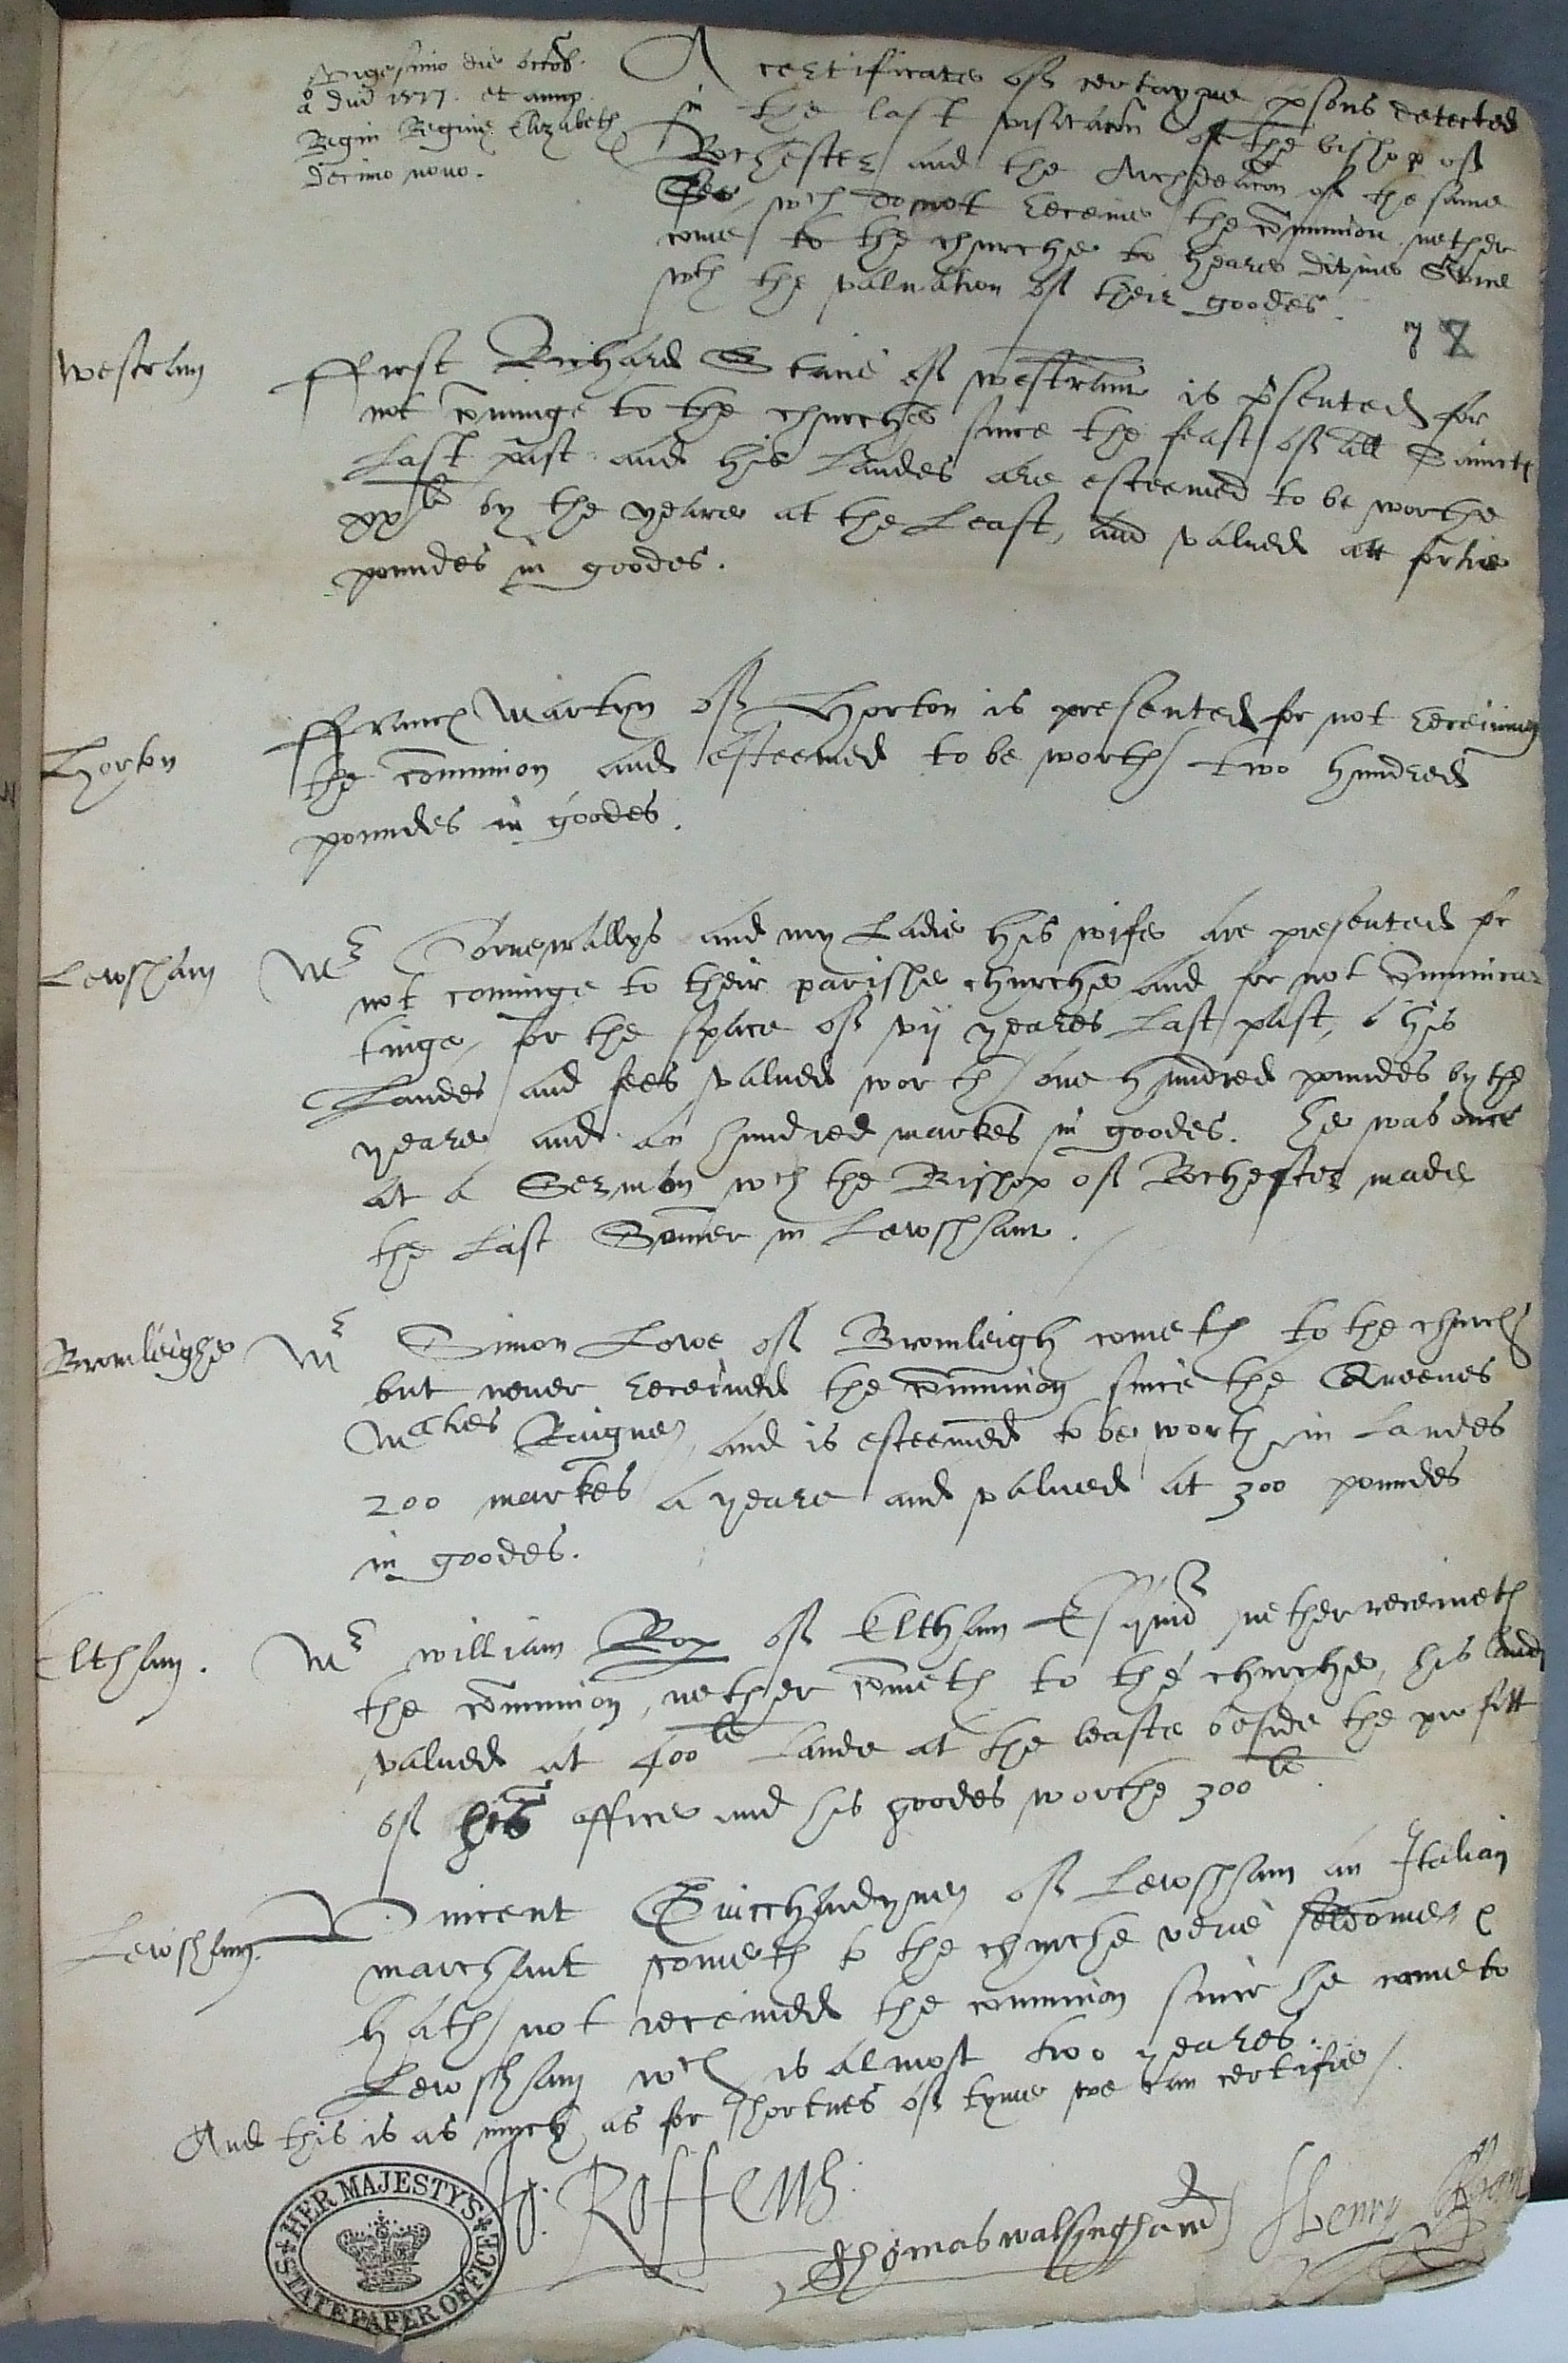 Vigesimo die Octob.
ao dni 1577. et anno
Regin Regine Elizabeth
Decimo nono.
A certificate off certayne psons detected
in the last visitacon off the bishop off
Rochester and the Archdeacon off the same
See, wch do not receive the comunion nether
come to the churche to heare divine Svice
wth the valuation off their goodes.
Westram
ffirst Richard Stane off Westram is psented for
not cominge to the churche since the feast off all Saincts
Last past and his Landes are esteemed to be worthe
xxli by the yeare at the Least, and valued att fortie
poundes in goodes.
Horton
ffrancs Martyn off Horton is presented for not receiving
the comunion and esteemed to be worth two hundred
poundes in goodes.
Lewsham
Mr Cornewallys and my Ladie his wife are presented for
not cominge to their parishe churche and for not comunica-
tinge, for the space off vij yeares Last past, & his
Landes and fees valued worth one hundred poundes by the
yeare and an hundred markes in goodes. He was once
at a Sermon wch the Bishop off Rochester made
the Last Somer in Lewsham.
Bromleighe
Mr Simon Lowe off Bromleigh cometh to the church
but never received the comunion since the Queenes
Maties Raigne, and is esteemed to be worth in Landes
200 markes a yeare and valued at 300 poundes
in goodes.
Eltham.
Mr William Rop off Eltham Esquir nether receiveth
the comunion, nether cometh to the churche, his land
valued at 400li Lande at the leaste beside the profitt
off his office and his goodes worthe 300li.
Lewsham.
Vincent Guicchardyne off Lewsham an Italian
marchant cometh to the churche verie seldome, &
hath not received the comunion since he came to
Lewsham wch is almost two yeares.
And this is as mych as for shortnes off tyme we can certifie.
Jo: Roffens.
Thomas Walsingham
Henry
HER MAJESTY'S
STATE PAPER OFFICE